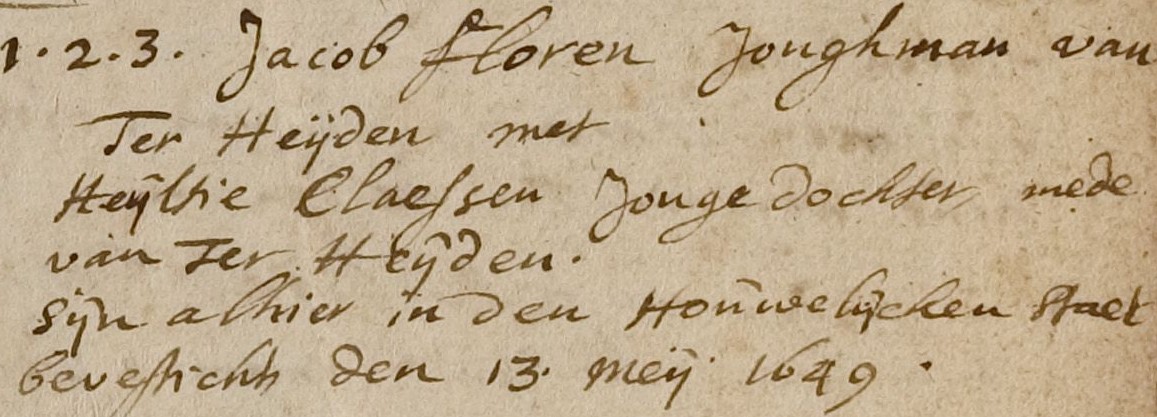 1. 2. 3. Jacob floren Jonghman van
Ter Heijden met
Heijltie Claessen Jonge dochter mede
van Ter Heijden.
Sijn alhier in den Houwelijcken Staet
bevesticht den 13. meij 1649.